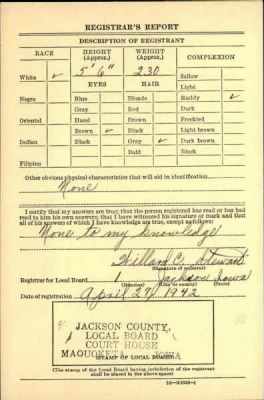 REGISTRAR'S REPORT
DESCRIPTION OF REGISTRANT
RACE HEIGHT (Approx.) WEIGHT (Approx.) COMPLEXION
White ✓ 5' 6" 230 Sallow
EYES HAIR Light
Negro Blue Blonde Ruddy ✓
Gray Red Dark
Oriental Hazel Brown Freckled
Brown ✓ Black Light brown
Indian Black Gray ✓ Dark brown
Bald Black
Filipino
Other obvious physical characteristics that will aid in identification
None
I certify that my answers are true; that the person registered has read or has had
read to him his own answers; that I have witnessed his signature or mark and that
all of his answers of which I have knowledge are true, except as follows:
None to my knowledge
Willard C. Stewart
(Signature of registrar)
Registrar for Local Board 1 Jackson Iowa
(Number) (City or county) (State)
Date of registration April 27, 1942
JACKSON COUNTY,
LOCAL BOARD
COURT HOUSE
MAQUOKETA, IOWA
(STAMP OF LOCAL BOARD)
(The stamp of the Local Board having jurisdiction of the registrant
shall be placed in the above space)